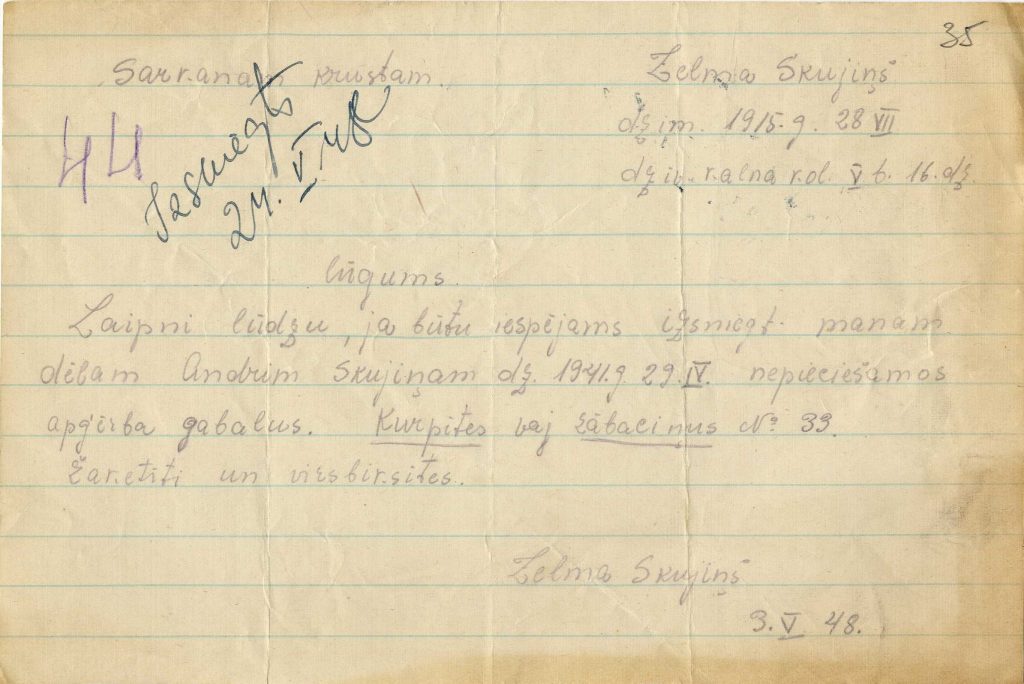 35
Sarkanam krustam.
Zelma Skujiņš
dzim. 1915.g. 28 VII
44
dziv.
V b. 16. dz.
Izsniegts
24. V 48
lūgums.
Laipni lūdzu, ja būtu iespējams izsniegt manam
dēlam Andrim Skujiņam dz. 1941.g. 29. IV. nepieciešamos
apģērba gabalus. Kurpītes vaj zābaciņus № 33.
žaketīti un virsbiksītes.
Zelma Skujiņš
3. V 48.